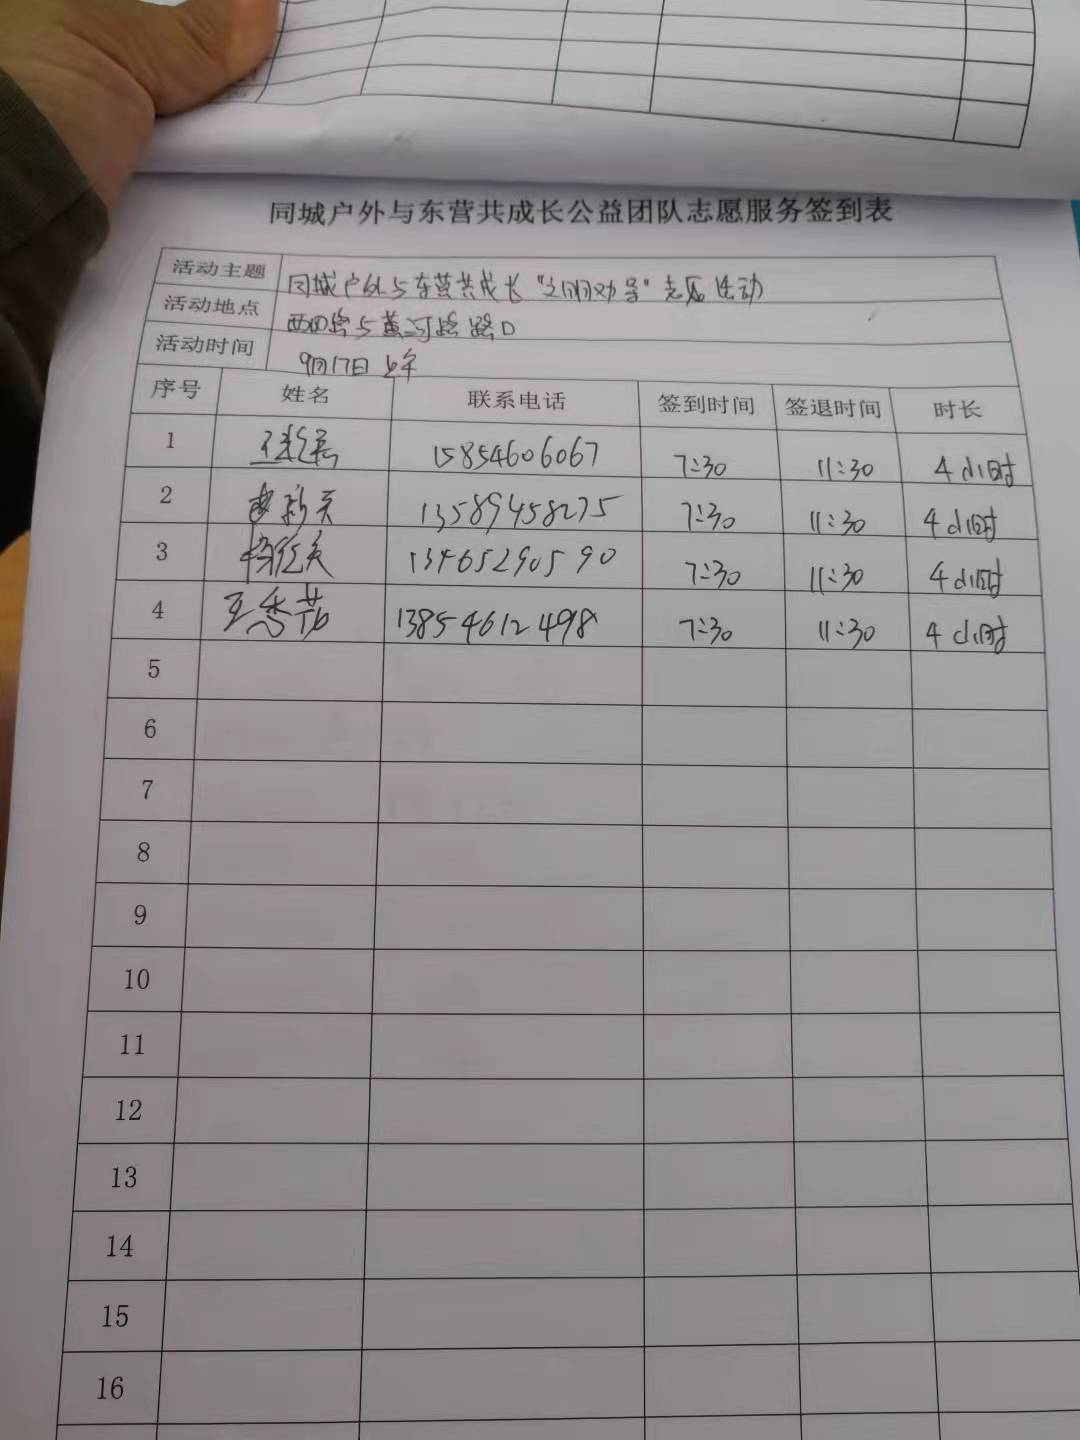 同城户外与东营共成长公益团队志愿服务签到表
活动主题 同城户外与东营共成长"文明劝导"志愿活动
活动地点 西四路与黄河路路口
活动时间 9月17日上午
序号 姓名 联系电话 签到时间 签退时间 时长
1 15854606067 7:30 11:30 4小时
2 13589458275 7:30 11:30 4小时
3 13465290590 7:30 11:30 4小时
4 王秀茹 13854612498 7:30 11:30 4小时
5
6
7
8
9
10
11
12
13
14
15
16